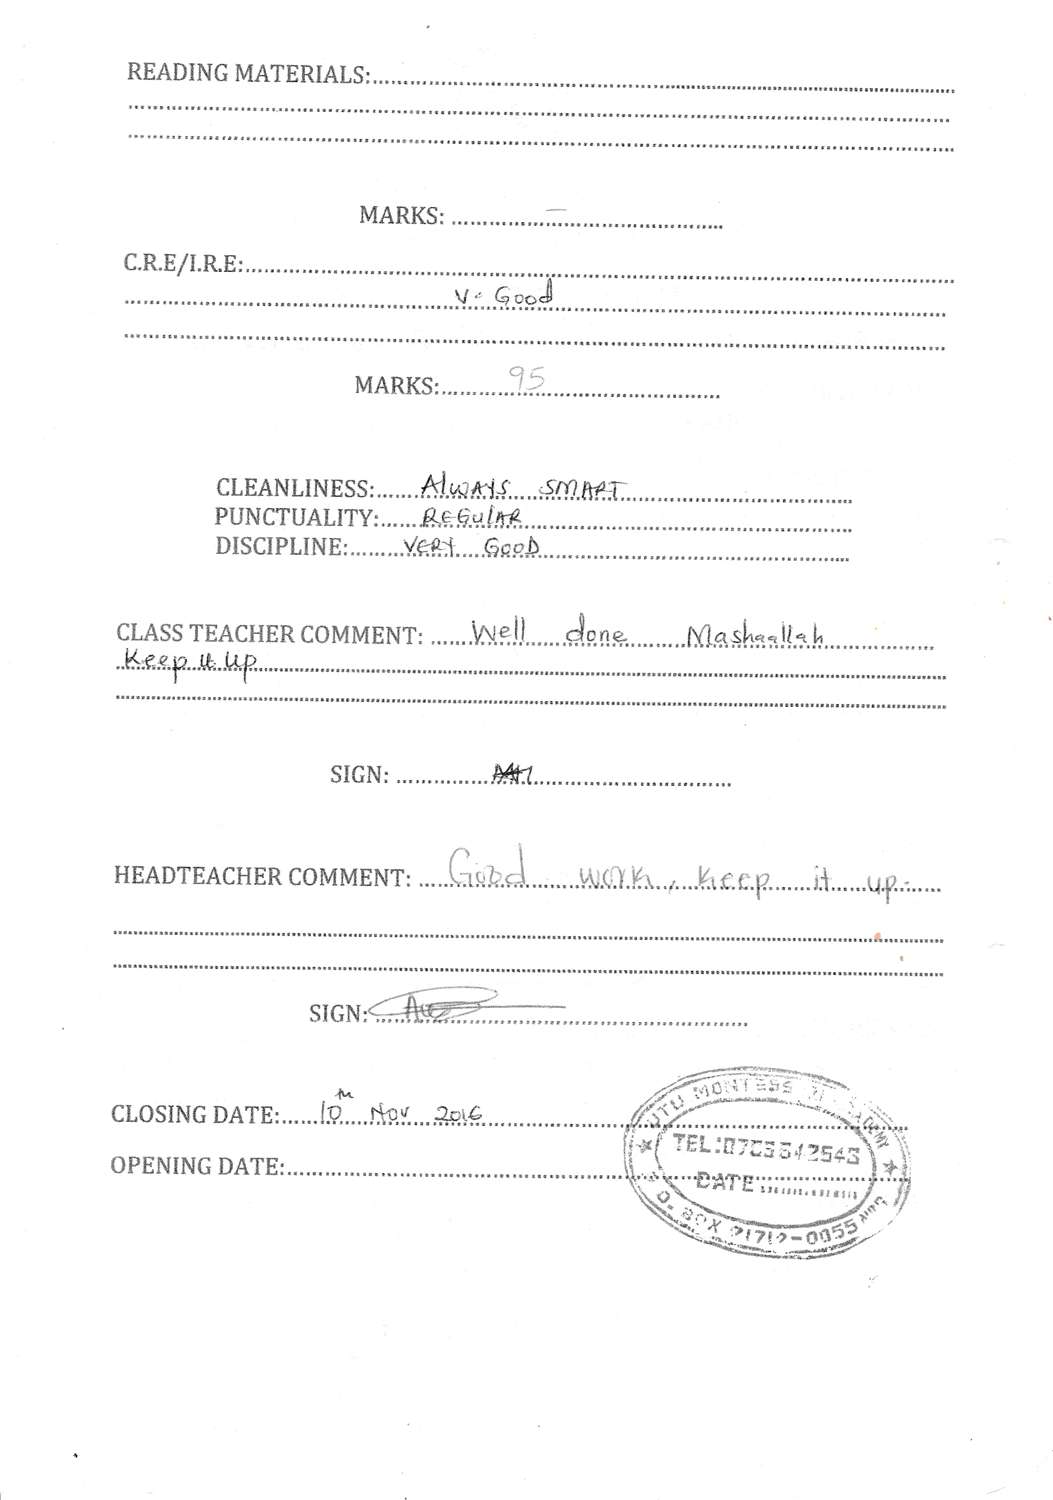 READING MATERIALS:
MARKS: –
C.R.E/I.R.E:
V. Good
MARKS: 95
CLEANLINESS: Always SMART
PUNCTUALITY: REGULAR
DISCIPLINE: VERY GOOD
CLASS TEACHER COMMENT: Well done Mashaallah
Keep it up
SIGN:
HEADTEACHER COMMENT: Good work, keep it up.
SIGN:
CLOSING DATE: 10th Nov 2016
OPENING DATE:
UTU MONTESS
TEL:
DATE
BOX